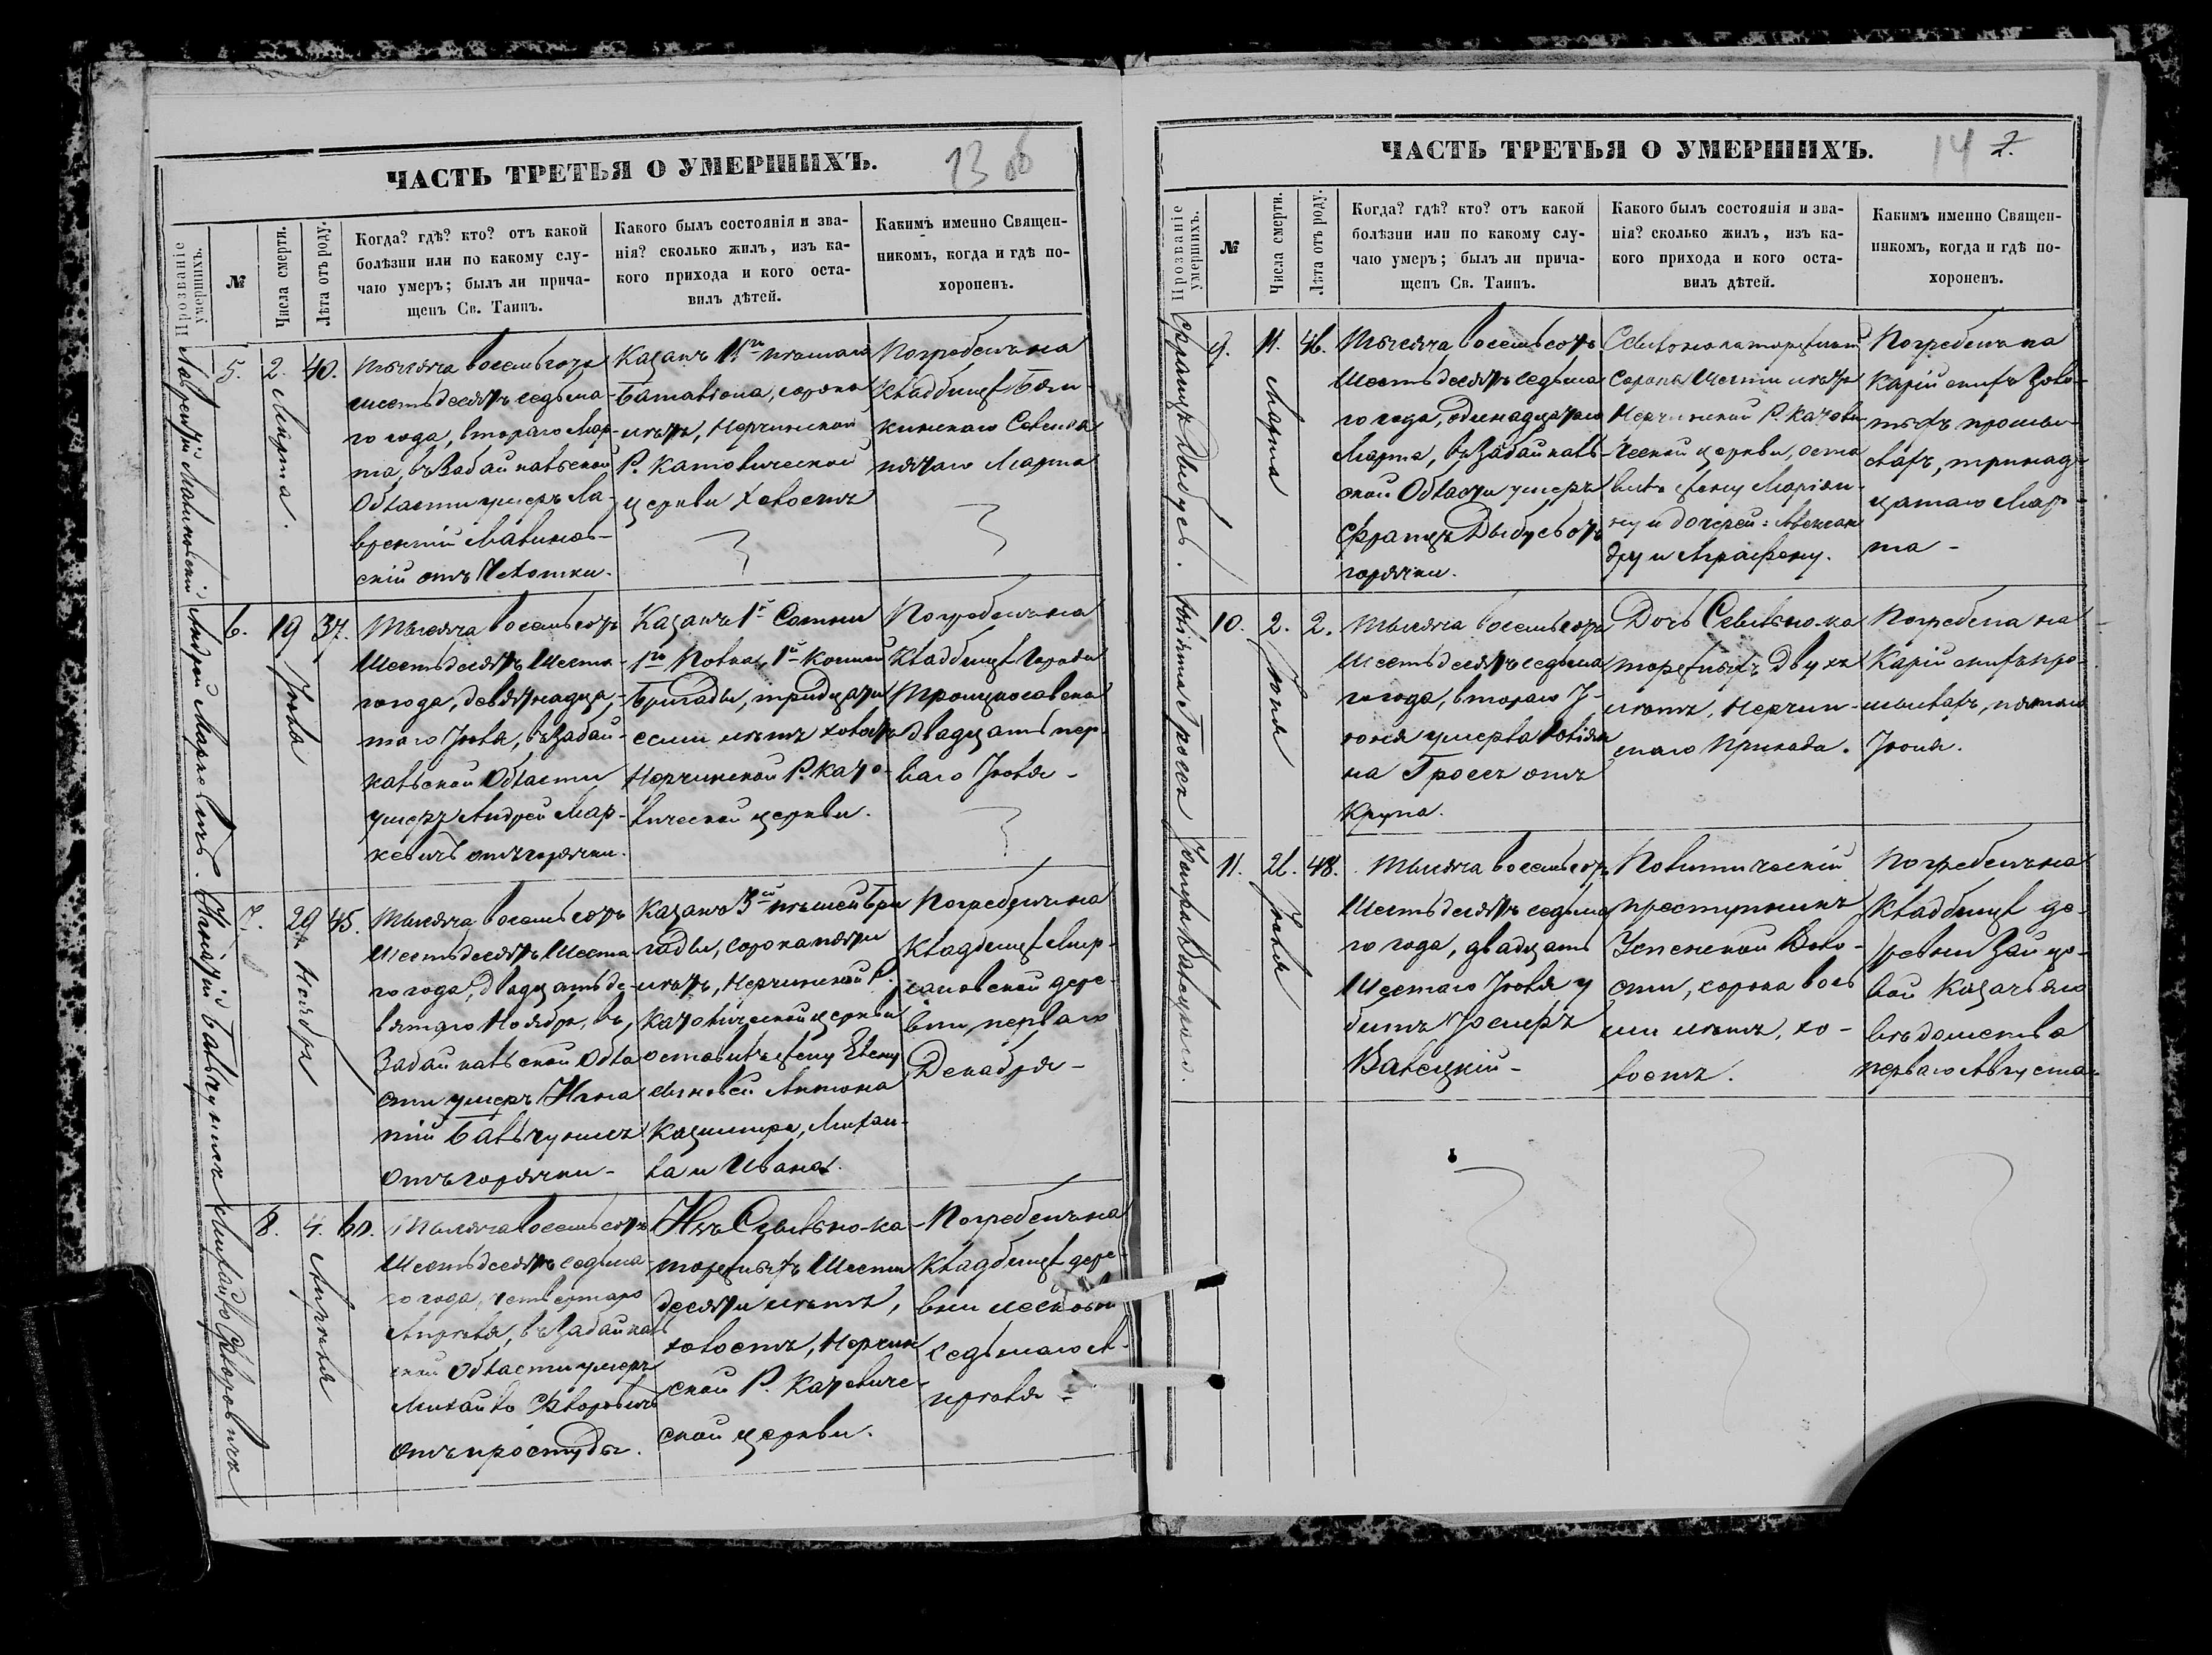 ЧАСТЬ ТРЕТЬЯ О УМЕРШИХЪ.
13 об
Прозваніе умершихъ.
№
Числа смерти.
Лѣта отъ роду.
Когда? гдѣ? кто? отъ какой
болѣзни или по какому слу-
чаю умеръ; былъ ли прича-
щенъ Св. Таинъ.
Какого былъ состоянія и зва-
нія? сколько жилъ, изъ ка-
кого прихода и кого оста-
вилъ дѣтей.
Какимъ именно Священ-
никомъ, когда и гдѣ по-
хороненъ.
Лаврентій Малиновскій
5.
2. Марта.
40.
Тысяча восемьсотъ
шестьдесятъ седьма-
го года, втораго Мар-
та, въ Забайкальской
Области умеръ Ла-
врентій Малинов-
скій отъ чахотки.
Казакъ пѣшаго
Баталіона, сорока
лѣтъ, Нерчинской
Р. Католической
церкви холостъ
Погребенъ на
кладбищѣ
пятаго Марта
Андрей Маркевичъ.
6.
19 Іюля
37.
Тысяча восемьсотъ
шестьдесятъ шеста-
го года, девятнадца-
таго Іюля, въ Забай-
кальской Области
умеръ Андрей Мар-
кевичъ отъ горячки.
Казакъ 1й Сотни
1го Полка, 1й Конной
Бригады, тридцати
семи лѣтъ холостъ
Нерчинской Р. Като-
лической церкви.
Погребенъ на
кладбищѣ Города
Троицкосавска
двадцать пер-
ваго Іюля -
Игнатій Бальчунисъ
7.
29 Ноября
45.
Тысяча восемьсотъ
шестьдесятъ шеста-
го года, двадцать де-
вятаго Ноября, въ
Забайкальской Обла
сти умеръ Игна
тій Бальчунисъ
отъ горячки -
Казакъ 3ей пѣшей Бри
гады, сорока пяти
лѣтъ, Нерчинской Р.
Католической церкви
оставилъ жену Елену
сыновей Антона
Казимира, Михаи-
ла и Ивана.
Погребенъ на
кладбищѣ Мир-
сановской дере-
вни перваго
Декабря -
Михайло Фіоровичъ
8.
4. Апрѣля
60.
Тысяча восемьсотъ
шестьдесятъ седьма-
го года, четвертаго
Апрѣля, въ Забайкаль
ской Области умеръ
Михайло
отъ простуды.
Изъ Сыльно-ка-
торжныхъ шести
десяти лѣтъ,
холостъ, Нерчин
ской Р. Католиче-
ской церкви.
Погребенъ на
кладбищѣ дере-
вни
седьмаго А-
прѣля -
ЧАСТЬ ТРЕТЬЯ О УМЕРШИХЪ.
14 2.
Прозваніе умершихъ.
№
Числа смерти.
Лѣта отъ роду.
Когда? гдѣ? кто? отъ какой
болѣзни или по какому слу-
чаю умеръ; былъ ли прича-
щенъ Св. Таинъ.
Какого былъ состоянія и зва-
нія? сколько жилъ, изъ ка-
кого прихода и кого оста-
вилъ дѣтей.
Какимъ именно Священ-
никомъ, когда и гдѣ по-
хороненъ.
Францъ Дыбусь.
9.
11. Марта
46.
Тысяча восемьсотъ
шестьдесятъ седьма
го года, одинадцатаго
Марта, въ Забайкаль-
ской Области умеръ
Францъ Дыбусь отъ
горячки.
Сыльнокаторжный
сорока шести лѣтъ
Нерчинской Р. Католи
ческой церкви, оста
вилъ жену Маріян-
ну и дочерей: Алексан
дру и Аграфену.
Погребенъ на
Карійскихъ Золо-
тыхъ промы-
слахъ, тринад-
цатаго Мар-
та -
Гросъ
10.
2. Іюня
2.
Тысяча восемьсотъ
шестьдесятъ седьма
го года, втораго І-
юня умерла Юліан
на Гросъ отъ
крупа.
Дочь Сыльно-ка
торжныхъ двухъ
лѣтъ, Нерчин-
скаго прихода.
Погребена на
Карійскихъ про-
мыслахъ, пятаго
Іюня.
Іосифъ Валецкій.
11.
26. Іюля
48.
Тысяча восемьсотъ
шестьдесятъ седьма
го года, двадцать
шестаго Іюля у
битъ Іосифъ
Валецкій -
Политическій
преступникъ
Успенской Воло-
сти, сорока вось
ми лѣтъ, хо-
лостъ.
Погребенъ на
кладбищѣ де-
ревни Зайцо-
вой Казачьяго
вѣдомства
перваго Августа